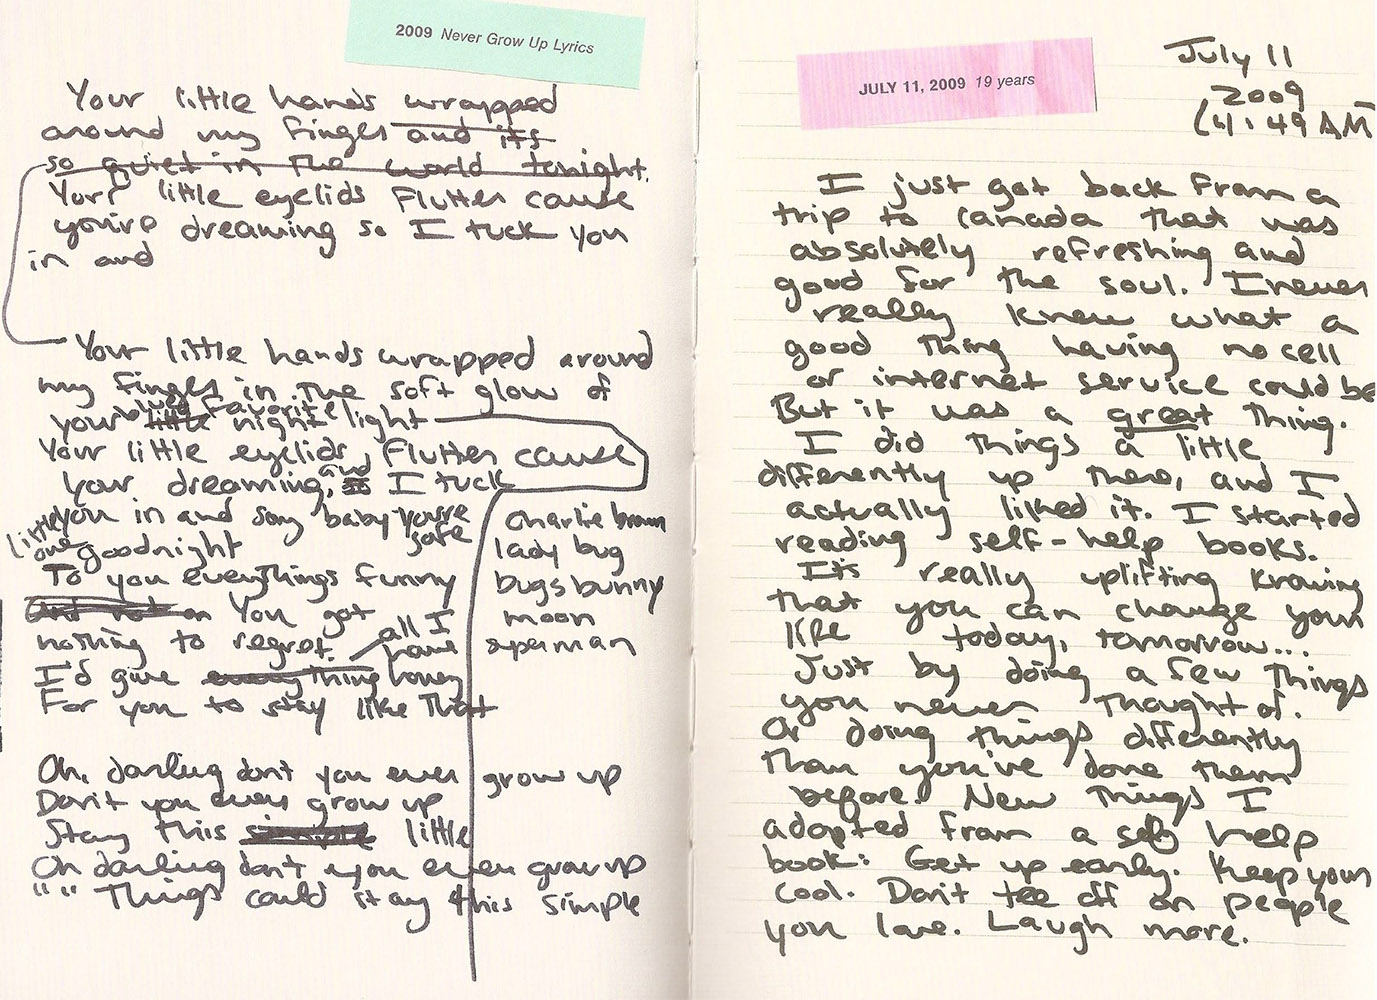 2009 Never Grow Up Lyrics
Your little hands wrapped
around my finger and its
so quiet in the world tonight.
Your little eyelids flutter cause
you're dreaming so I tuck you
in and
Your little hands wrapped around
my finger in the soft glow of
your little favorite night light
Your little eyelids flutter cause
your dreaming, and so I tuck
you in and say baby you're safe
little one goodnight
To you everythings funny
You got
nothing to regret. all I have
I'd give everything honey
For you to stay like that
charlie brown
lady bug
bugs bunny
moon
superman
Oh, darling don't you ever grow up
Don't you ever grow up
Stay this simple little
Oh darling don't you ever grow up
" " Things could stay this simple
JULY 11, 2009 19 years
July 11
2009
(4:49 AM
I just got back from a
trip to Canada that was
absolutely refreshing and
good for the soul. I never
really knew what a
good thing having no cell
or internet service could be
But it was a great thing.
I did things a little
differently up there, and I
actually liked it. I started
reading self-help books.
It's really uplifting knowing
that you can change your
life today, tomorrow...
Just by doing a few things
you never thought of.
Or doing things differently
than you've done them
before. New things I
adopted from a self help
book: Get up early. Keep your
cool. Don't tee off on people
you love. Laugh more.